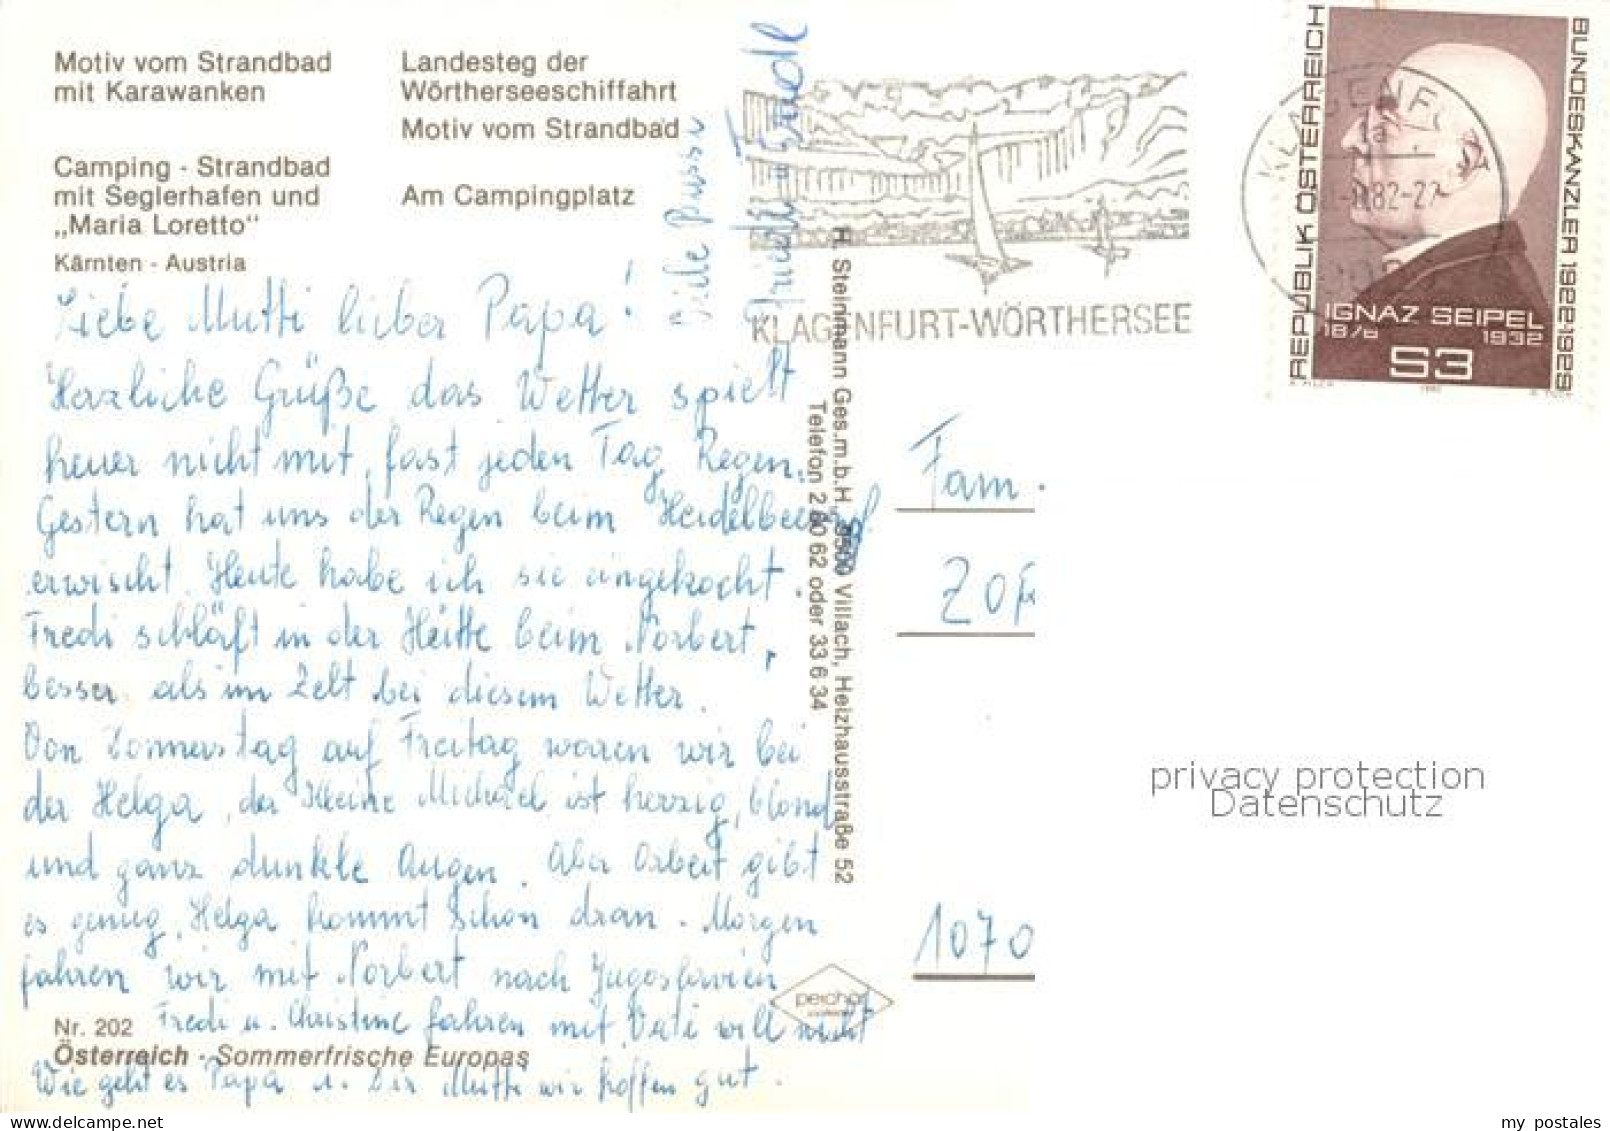 Motiv vom Strandbad
mit Karawanken
Camping - Strandbad
mit Seglerhafen und
„Maria Loretto“
Kärnten - Austria
Landesteg der
Wörtherseeschiffahrt
Motiv vom Strandbad
Am Campingplatz
Liebe Mutti lieber Papa!
Herzliche Grüße das Wetter spielt
heuer nicht mit, fast jeden Tag Regen.
Gestern hat uns der Regen beim
erwischt. Heute habe ich sie eingekocht.
Fredi schläft in der Hütte beim Norbert,
besser als im Zelt bei diesem Wetter.
Von Donnerstag auf Freitag waren wir bei
der Helga, der kleine Michael ist herzig, blond
und ganz dunkle Augen. Aber Arbeit gibt
es genug, Helga kommt schon dran. Morgen
fahren wir mit Norbert nach Jugoslavien
Fredi u. Christine fahren mit, Vati will nicht
Wie geht es Papa u. Dir Mutti wir hoffen gut.
Viele Bussi
Friedl
Nr. 202
Österreich - Sommerfrische Europas
H. Steinmann Ges.m.b.H., 9500 Villach, Heizhausstraße 52
Telefon 2 80 62 oder 33 6 34
KLAGENFURT-WÖRTHERSEE
KLAGENFURT
REPUBLIK ÖSTERREICH
BUNDESKANZLER 1922 1929
IGNAZ SEIPEL
1876 1932
S3
Fam.
1070
privacy protection
Datenschutz
my postales